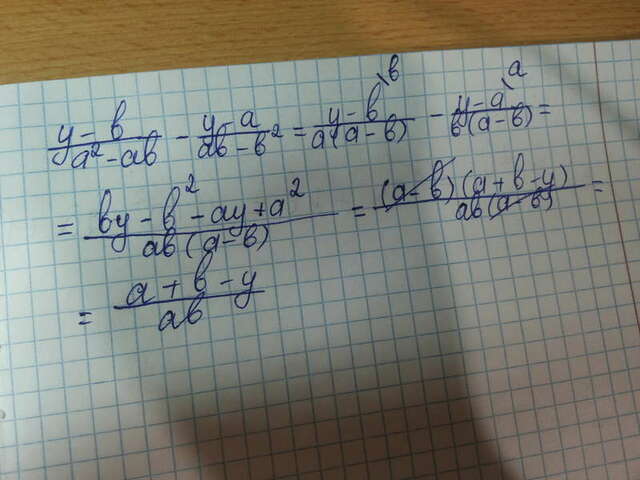 (y-b)/(a²-ab) - (y-a)/(ab-b²) = (y-b)\b/(a(a-b)) - (y-a)\a/(b(a-b)) =
= (by-b²-ay+a²)/(ab(a-b)) = ((a-b)(a+b-y))/(ab(a-b)) =
= (a+b-y)/(ab)